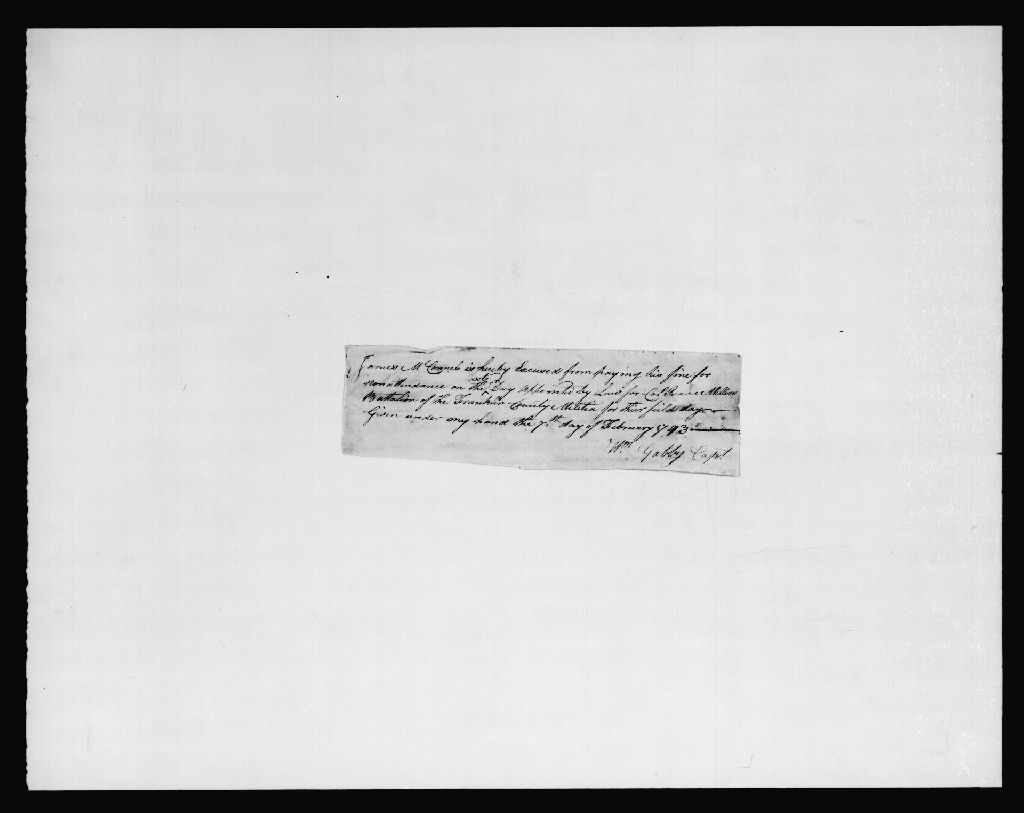 James McConnel is hereby Excused from paying his fine for
nonattendance on the Day appointed by Law for Col James
Battalion of the Franklin County Militia for their field days
Given under my hand the 7th day of February 1793
Wm Gabby Capt.